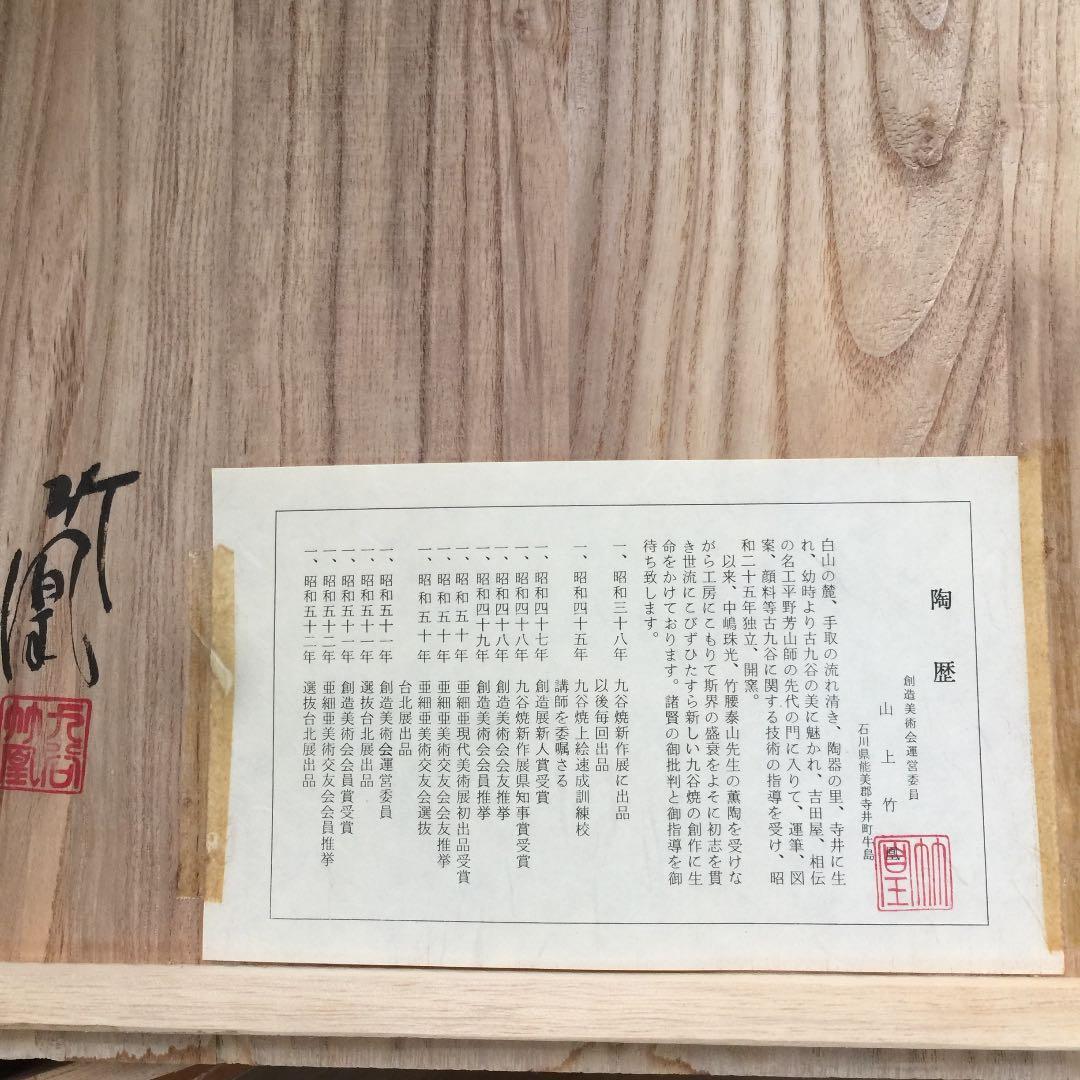 陶歴
創造美術会運営委員
山上竹凰
石川県能美郡寺井町牛島
白山の麓、手取の流れ清き、陶器の里、寺井に生
れ、幼時より古九谷の美に魅かれ、吉田屋、相伝
の名工平野芳山師の先代の門に入りて、運筆、図
案、顔料等古九谷に関する技術の指導を受け、昭
和二十五年独立、開窯。
以来、中嶋珠光、竹腰泰山先生の薫陶を受けな
がら工房にこもりて斯界の盛衰をよそに初志を貫
き世流にこびずひたすら新しい九谷焼の創作に生
命をかけております。諸賢の御批判と御指導を御
待ち致します。
一、昭和三十八年 九谷焼新作展に出品
以後毎回出品
一、昭和四十五年 九谷焼上絵速成訓練校
講師を委嘱さる
一、昭和四十七年 創造展新人賞受賞
一、昭和四十八年 九谷焼新作展県知事賞受賞
一、昭和四十八年 創造美術会会友推挙
一、昭和四十九年 創造美術会会員推挙
一、昭和五十年 亜細亜現代美術展初出品受賞
一、昭和五十年 亜細亜美術交友会会友推挙
一、昭和五十年 亜細亜美術交友会選抜
台北展出品
一、昭和五十一年 創造美術会運営委員
一、昭和五十一年 選抜台北展出品
一、昭和五十一年 創造美術会会員賞受賞
一、昭和五十二年 亜細亜美術交友会会員推挙
一、昭和五十二年 選抜台北展出品
竹凰
九谷
竹凰